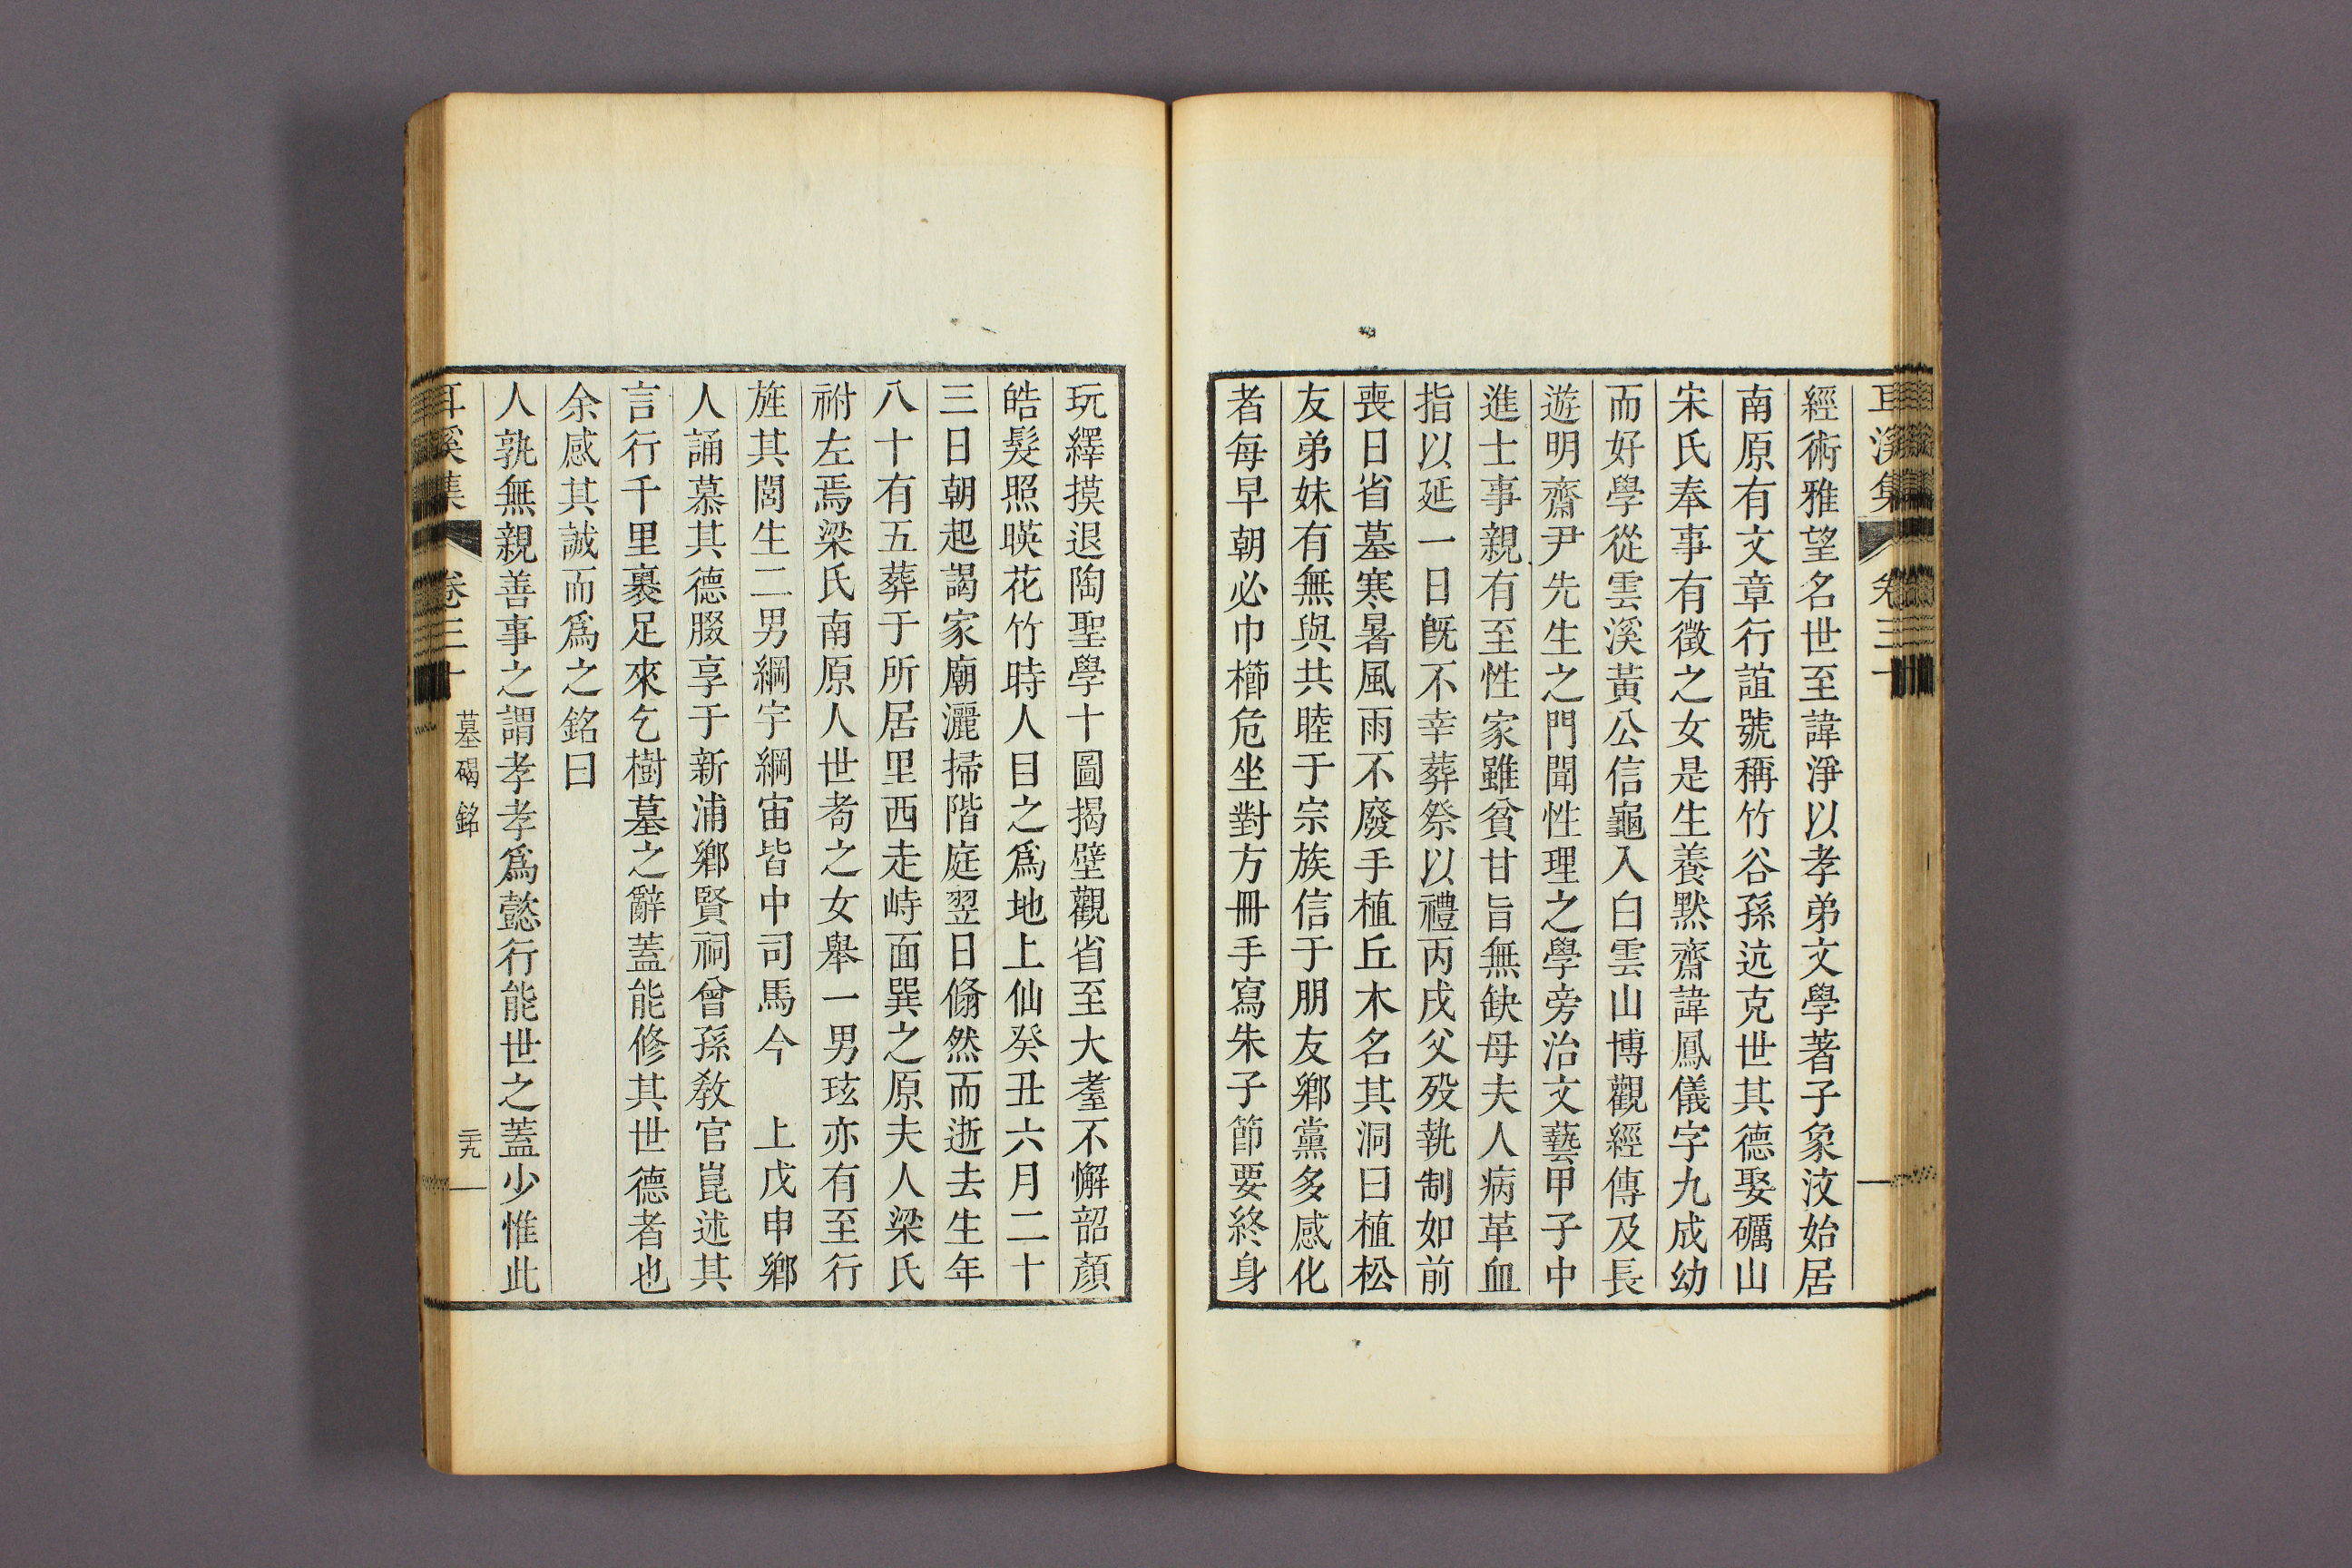 耳溪集 卷三十
經術雅望名世至諱淨以孝弟文學著子象汶始居
南原有文章行誼號稱竹谷孫迒克世其德娶礪山
宋氏奉事有徵之女是生養默齋諱鳳儀字九成幼
而好學從雲溪黃公信龜入白雲山博觀經傳及長
遊明齋尹先生之門聞性理之學旁治文藝甲子中
進士事親有至性家雖貧甘旨無缺母夫人病革血
指以延一日旣不幸葬祭以禮丙戌父歿執制如前
喪日省墓寒暑風雨不廢手植丘木名其洞曰植松
友弟妹有無與共睦于宗族信于朋友鄕黨多感化
者每早朝必巾櫛危坐對方冊手寫朱子節要終身
玩繹摸退陶聖學十圖揭壁觀省至大耋不懈韶顏
皓髮照暎花竹時人目之爲地上仙癸丑六月二十
三日朝起謁家廟灑掃階庭翌日翛然而逝去生年
八十有五葬于所居里西走峙面巽之原夫人梁氏
祔左焉梁氏南原人世耇之女舉一男玹亦有至行
旌其閭生二男綱宇綱宙皆中司馬今　上戊申鄕
人誦慕其德腏享于新浦鄕賢祠曾孫敎官崑述其
言行千里裹足來乞樹墓之辭蓋能修其世德者也
余感其誠而爲之銘曰
人孰無親善事之謂孝孝爲懿行能世之蓋少惟此
耳溪集 卷三十 墓碣銘 二十九